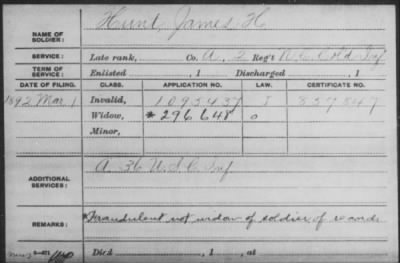 NAME OF SOLDIER: Hunt, James H
SERVICE: Late rank, Co. A, 2 Reg't N.C. Col'd Inf
TERM OF SERVICE: Enlisted , 1 Discharged , 1
DATE OF FILING. CLASS. APPLICATION NO. LAW. CERTIFICATE NO.
1892 Mar 1 Invalid, 1095437 J 857847
Widow, *296648 o
Minor,
ADDITIONAL SERVICES: A 36 U.S.C. Inf
REMARKS: *Fraudulent not widow of soldier of record
Died , 1 , at